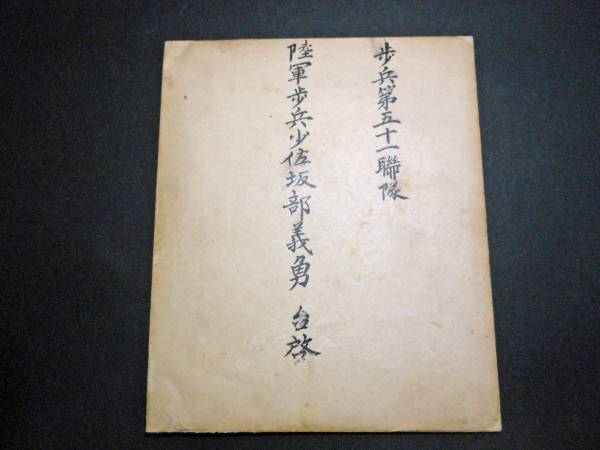 歩兵第五十一聯隊
陸軍歩兵少佐坂部義勇 台啓